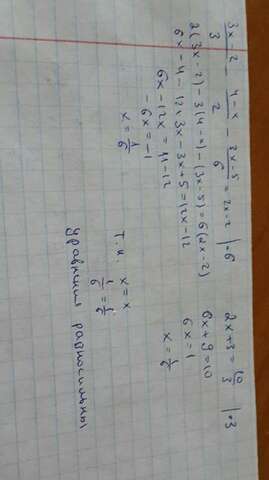 3x-2/3 - 4-x/2 - 3x-5/6 = 2x-2 |·6
2(3x-2)-3(4-x)-(3x-5)=6(2x-2)
6x-4-12+3x-3x+5=12x-12
6x-12x=11-12
-6x=-1
x=1/6
2x+3=10/3 |·3
6x+9=10
6x=1
x=1/6
т.к. x=x
1/6=1/6
уравнения равносильны